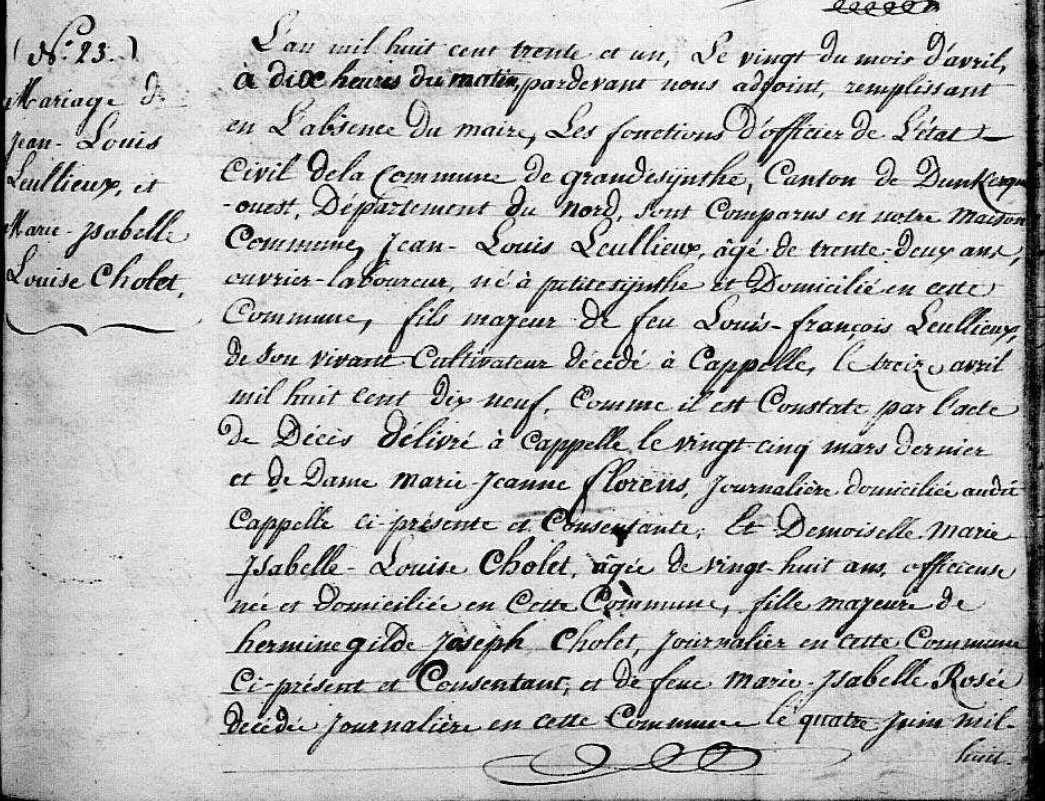 (N.° 23.)
Mariage de
Jean-Louis
Leullieux, et
Marie-Isabelle
Louise Cholet,
L'an mil huit cent trente et un, Le vingt du mois d'avril,
à dix heures du matin, pardevant nous adjoint, remplissant
en L'absence du maire, Les fonctions d'officier de L'état
Civil dela Commune de grandesynthe, Canton de Dunkerque
-ouest, Département du Nord, sont Comparus en notre Maison
Commune, Jean-Louis Leullieux, âgé de trente-deux ans,
ouvrier-laboureur, né à petitesynthe et Domicilié en cette
Commune, fils majeur de feu Louis-françois Leullieux,
de son vivant Cultivateur décédé à Cappelle, le treize avril
mil huit cent dix neuf, Comme il est Constaté par l'acte
de Décès délivré à Cappelle le vingt-cinq mars dernier
et de Dame marie-Jeanne florens, Journalière domiciliée audit
Cappelle ci-présente et Consentante; Et Demoiselle Marie
Isabelle-Louise Cholet, âgée de vingt-huit ans, officieuse
née et Domiciliée en Cette Commune, fille majeure de
herminegilde Joseph Cholet, Journalier en cette Commune
Ci-présent et Consentant, et de feue Marie-Isabelle Rosée
décédée Journalière en cette Commune le quatre Juin mil-
huit-